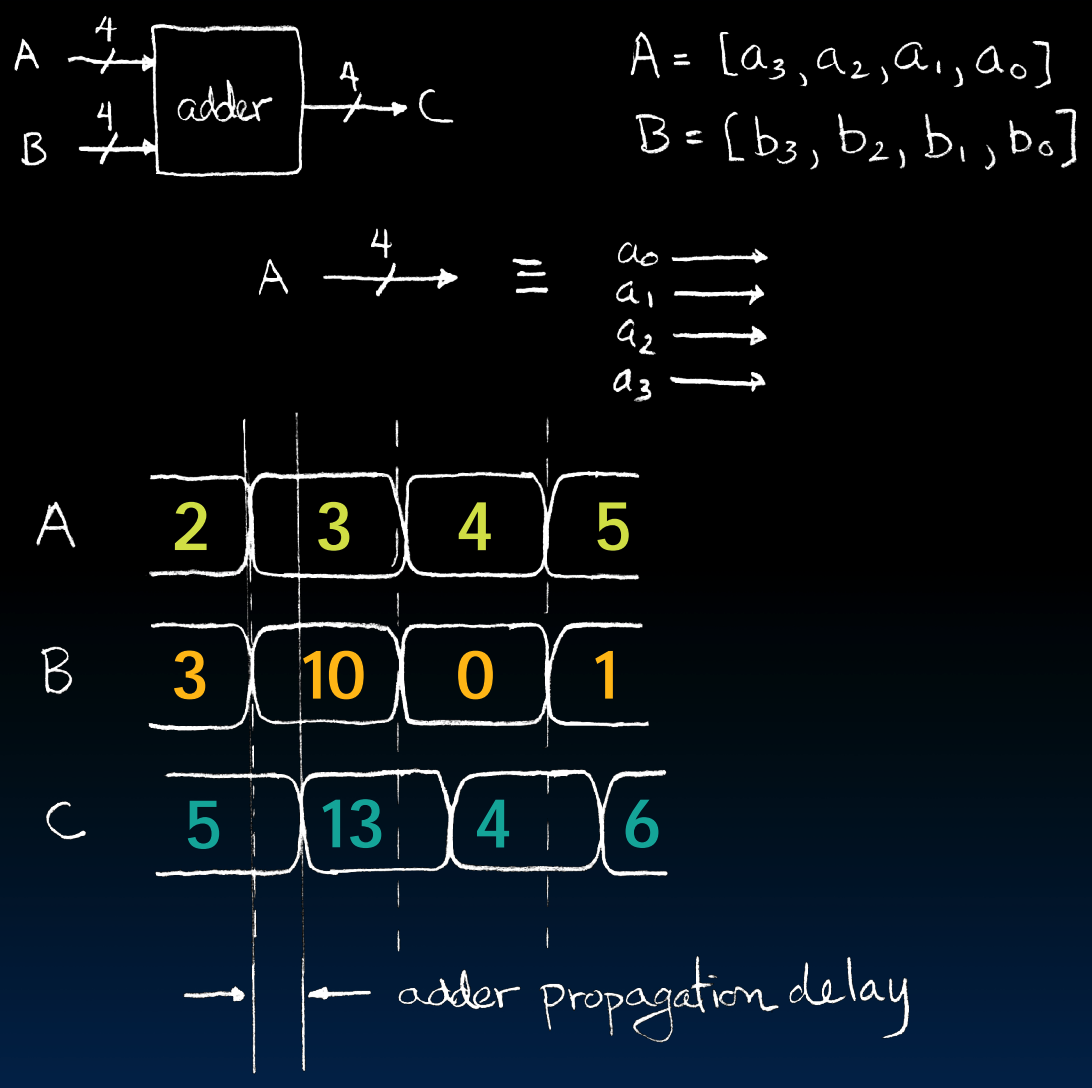 4
A
adder
4
C
4
B
A = [a₃, a₂, a₁, a₀]
B = [b₃, b₂, b₁, b₀]
4
A ≡
a₀
a₁
a₂
a₃
A 2 3 4 5
B 3 10 0 1
C 5 13 4 6
adder propagation delay